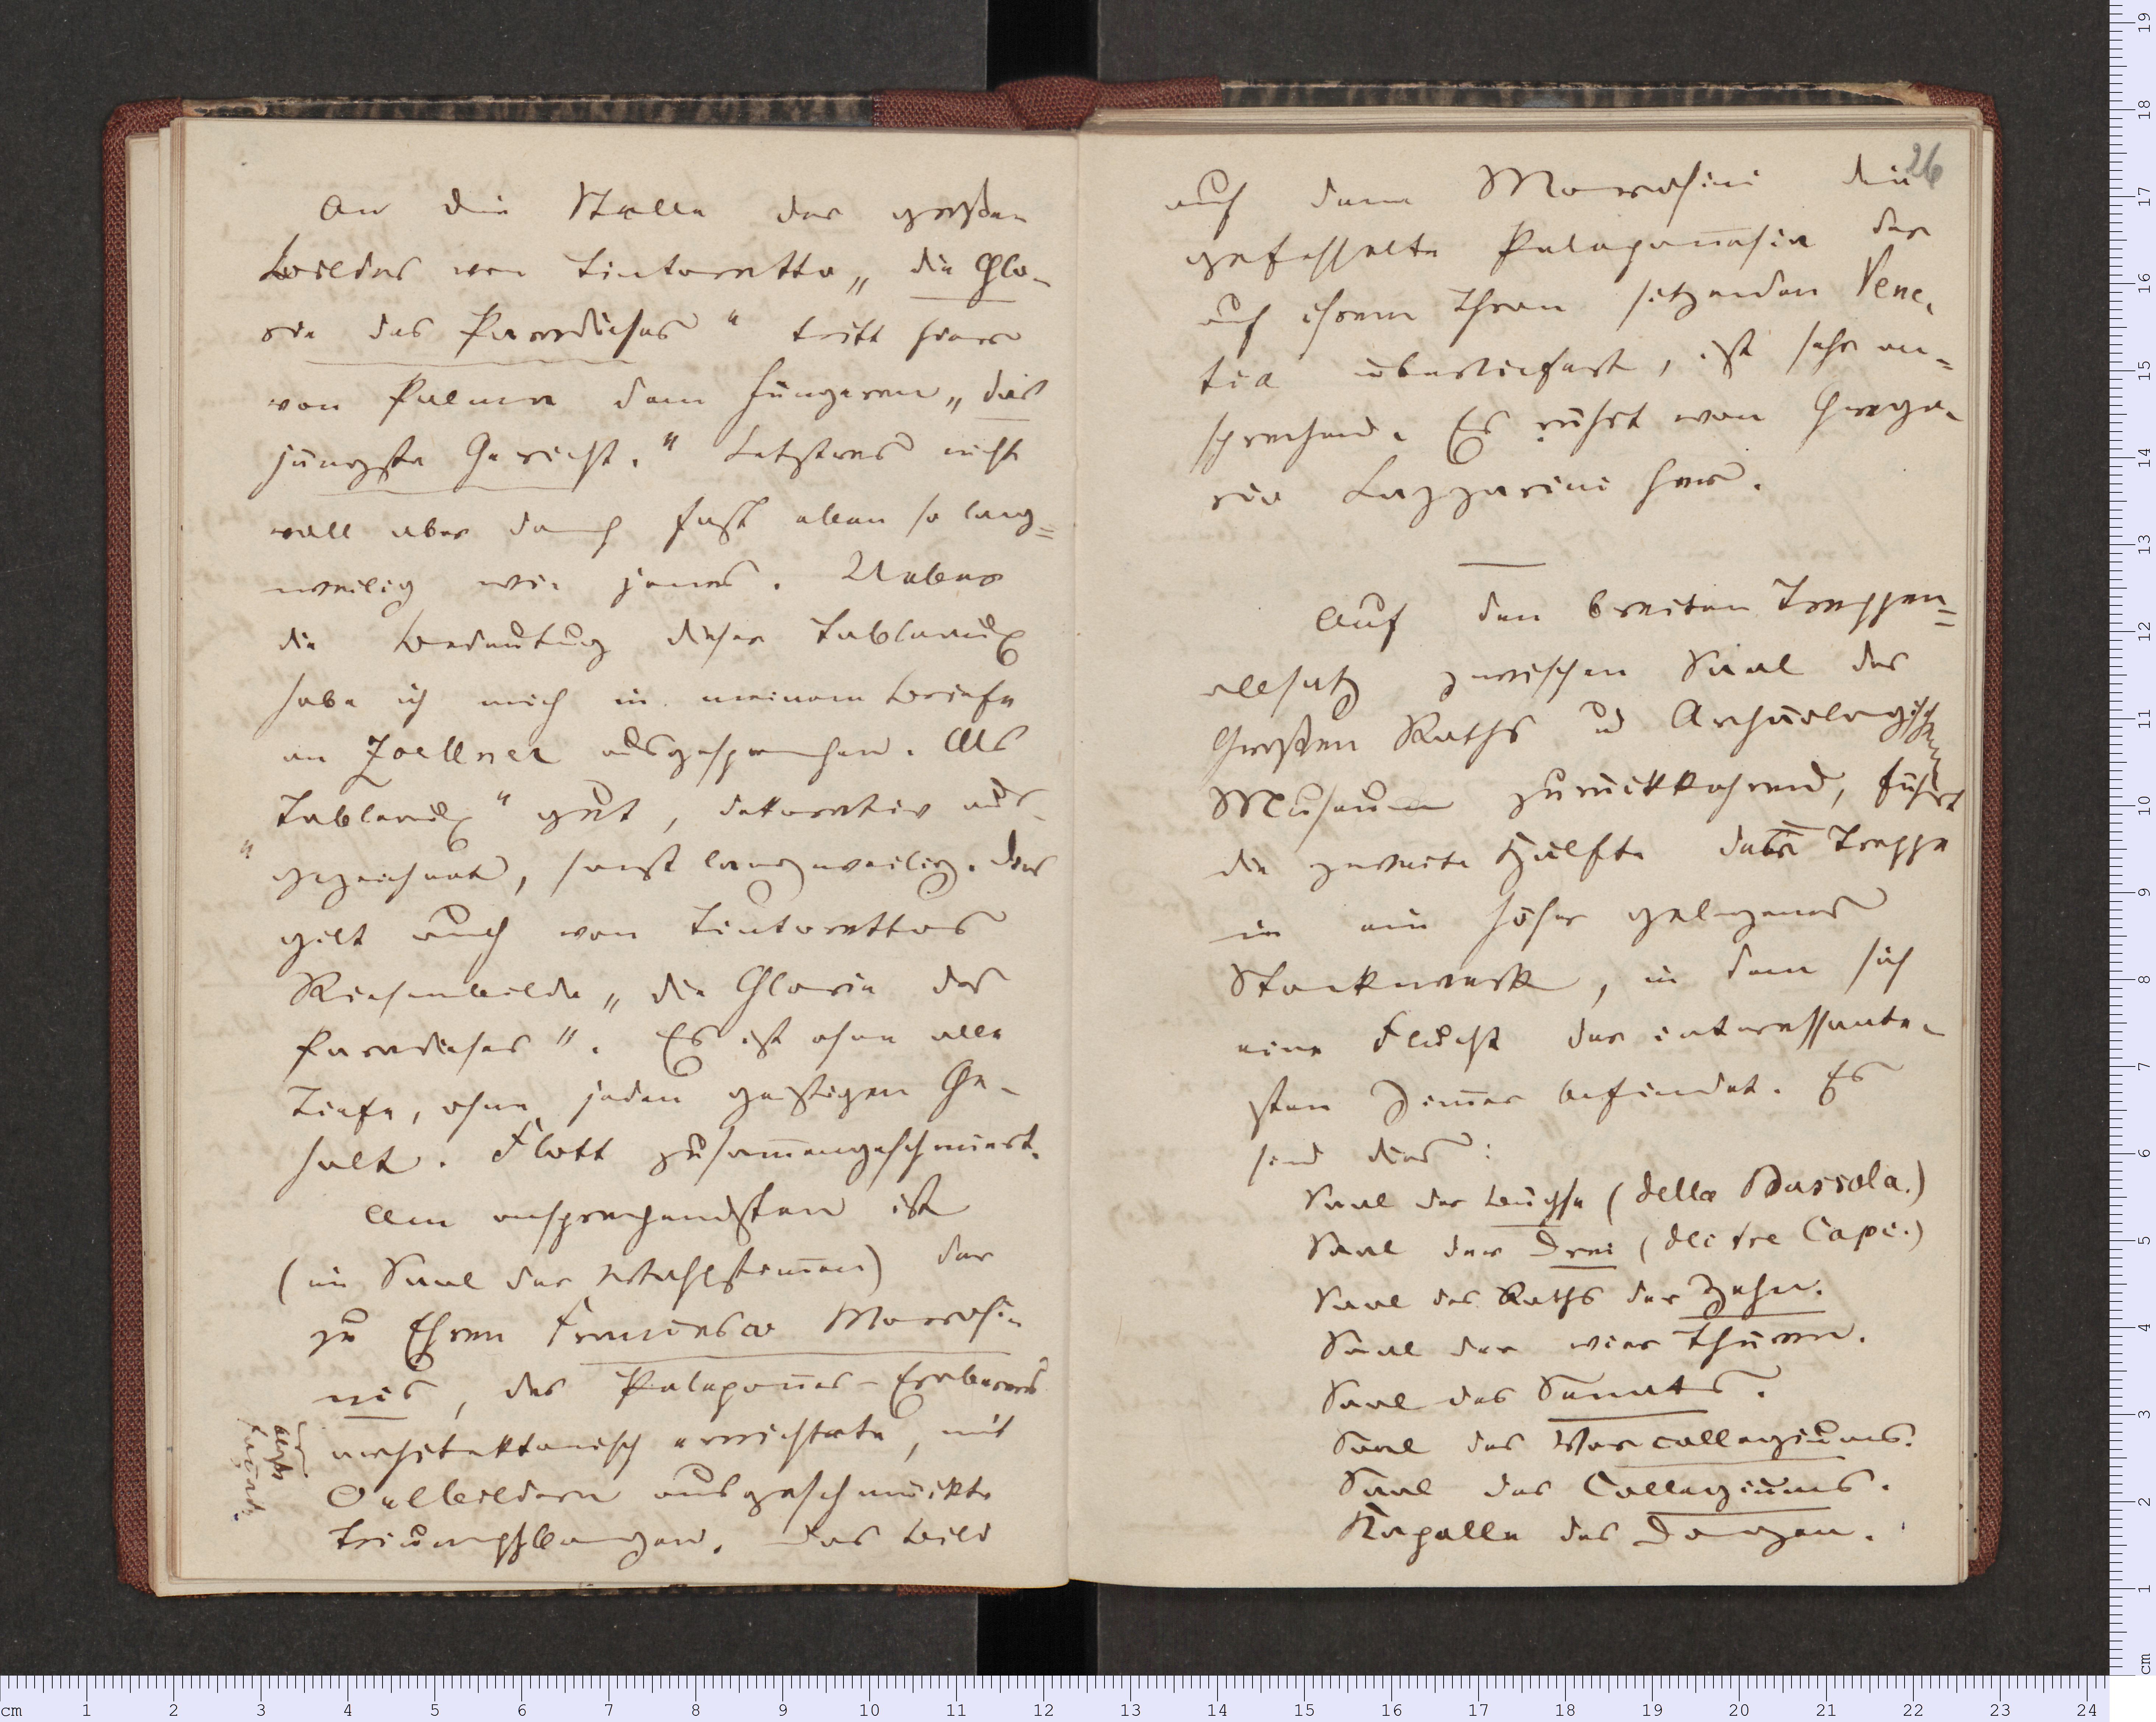 An die Stelle des großen
Bildes von Tintoretto „die Glo-
rie des Paradieses“ tritt hier
von Palma dem Jüngeren „das
jüngste Gericht.“ Letztres nicht
voll aber doch fast eben so lang=
weilig wie jenes. Ueber
die Bedeutung dieser Tableaux
habe ich mich in meinem Briefe
an Zoellner ausgesprochen. Als
„Tableaux“ gut, dekorativ aus-
gezeichnet, sonst langweilig. Das
gilt auch von Tintorettos
Riesenbilde „die Glorie des
Paradieses“. Es ist ohne alle
Tiefe, ohne jeden geistigen Ge-
halt. Flott zusam̅engeschmiert.
Am ansprechendsten ist
(im Saal der Wahlstim̅en) der
zu Ehren Francesco Morosi-
nis, des Pelepon̅es-Eroberers
architektonisch errichtete, mit
Oelbildern ausgeschmückte
Triumpfbogen. Das Bild
26
auf dem Morosini die
gefesselte Pelepon̅esia der
auf ihrem Thron sitzenden Vene-
tia überliefert, ist sehr an=
sprechend. Es rührt von Grego-
rio Lazzarini her.
Auf den breiten Treppen=
absatz zwischen Saal des
Großen Raths u Archäologischen
Museum zurückkehrend, führt
die zweite Hälfte der Treppe
in ein höher gelegenes
Stockwerk, in dem sich
eine Flucht der interessante-
sten Zim̅er befindet. Es
sind dies:
Saal der Büchse (della Bussola.)
Saal der Drei (dei tre Capi.)
Saal des Raths der Zehn.
Saal der vier Thüren.
Saal des Senats.
Saal des Vorcollegiums.
Saal des Collegiums.
Kapelle des Dogen.